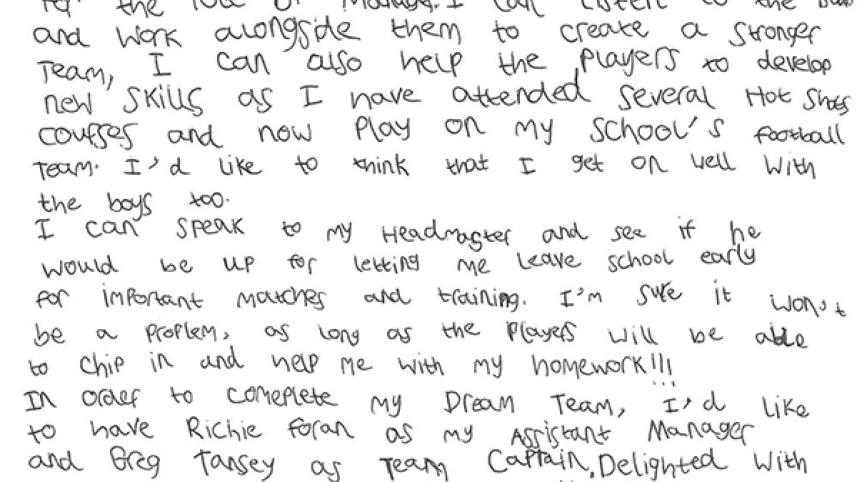 for the role of Manager. I can listen to the
and work alongside them to create a stronger
Team, I can also help the players to develop
new skills as I have attended several Hot Shots
courses and now play on my school's football
team. I'd like to think that I get on well with
the boys too.
I can speak to my Headmaster and see if he
would be up for letting me leave school early
for important matches and training. I'm sure it won't
be a problem, as long as the players will be able
to chip in and help me with my homework!!!
In order to comeplete my Dream Team, I'd like
to have Richie Foran as my Assistant Manager
and Greg Tansey as Team Captain. Delighted with